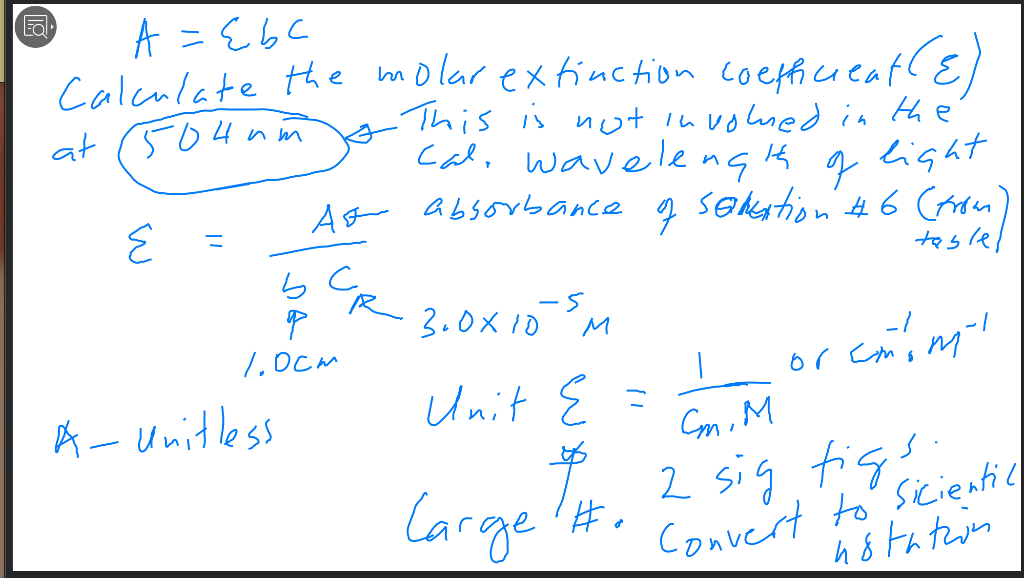 A = εbC
Calculate the molar extinction coefficient (ε)
at 504nm This is not involved in the
Cal. wavelength of light
ε = A absorbance of solution #6 (from
table)
b C
3.0x10⁻⁵ M
1.0cm
Unit ε = 1 / cm.M or cm⁻¹. M⁻¹
A - unitless
2 sig figs.
Large #. Convert to Sicientific
notation